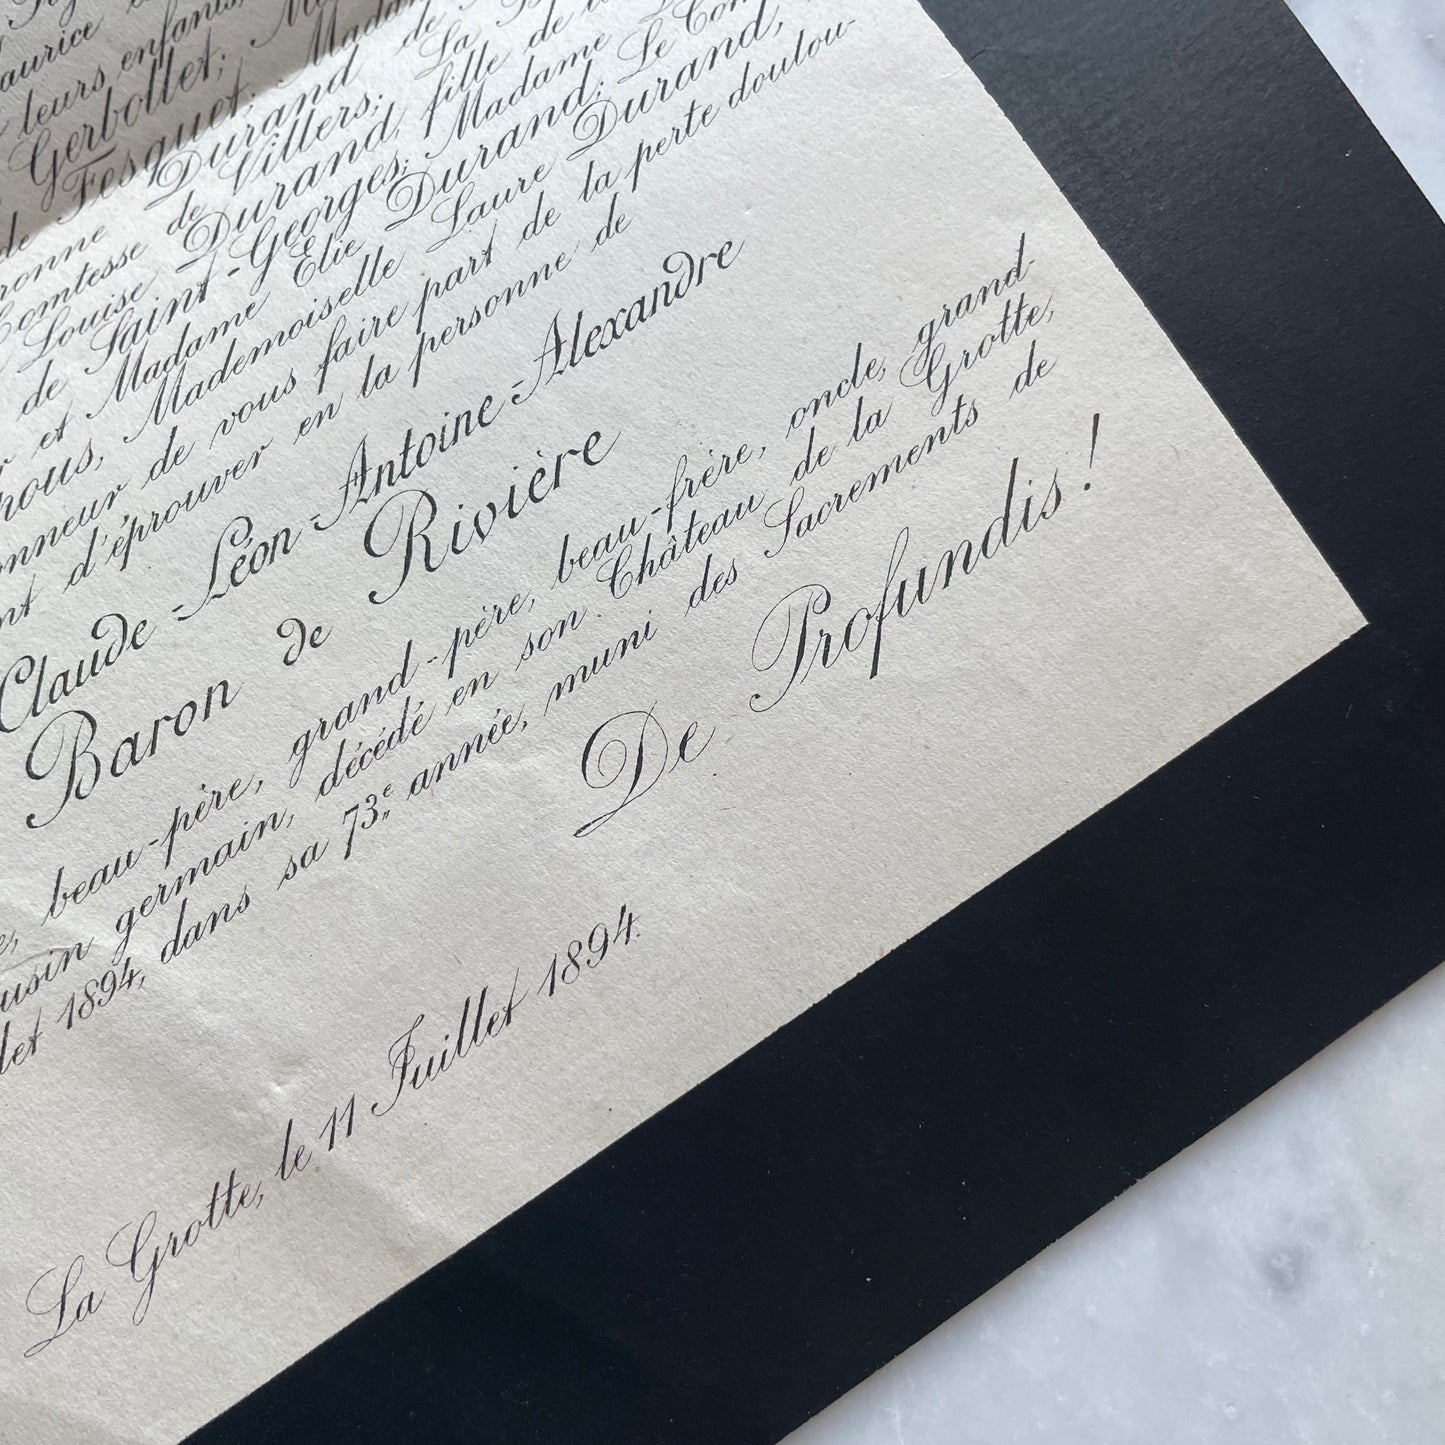 leurs enfants,
Gerbollet;
de Fesquet; Madam
ronne Durand de
Comtesse de Villers; La
Louise Durand, fille de
de Saint-Georges; Madame
et Madame Elie Durand; Le Com
nous, Mademoiselle Laure Durand,
onneur de vous faire part de la perte doulou-
nt d'éprouver en la personne de
Claude-Léon-Antoine-Alexandre
Baron de Rivière
e, beau-père, grand-père, beau-frère, oncle, grand-
usin germain, décédé en son Château de la Grotte,
let 1894, dans sa 73e année, muni des Sacrements de
De Profundis!
La Grotte, le 11 Juillet 1894.